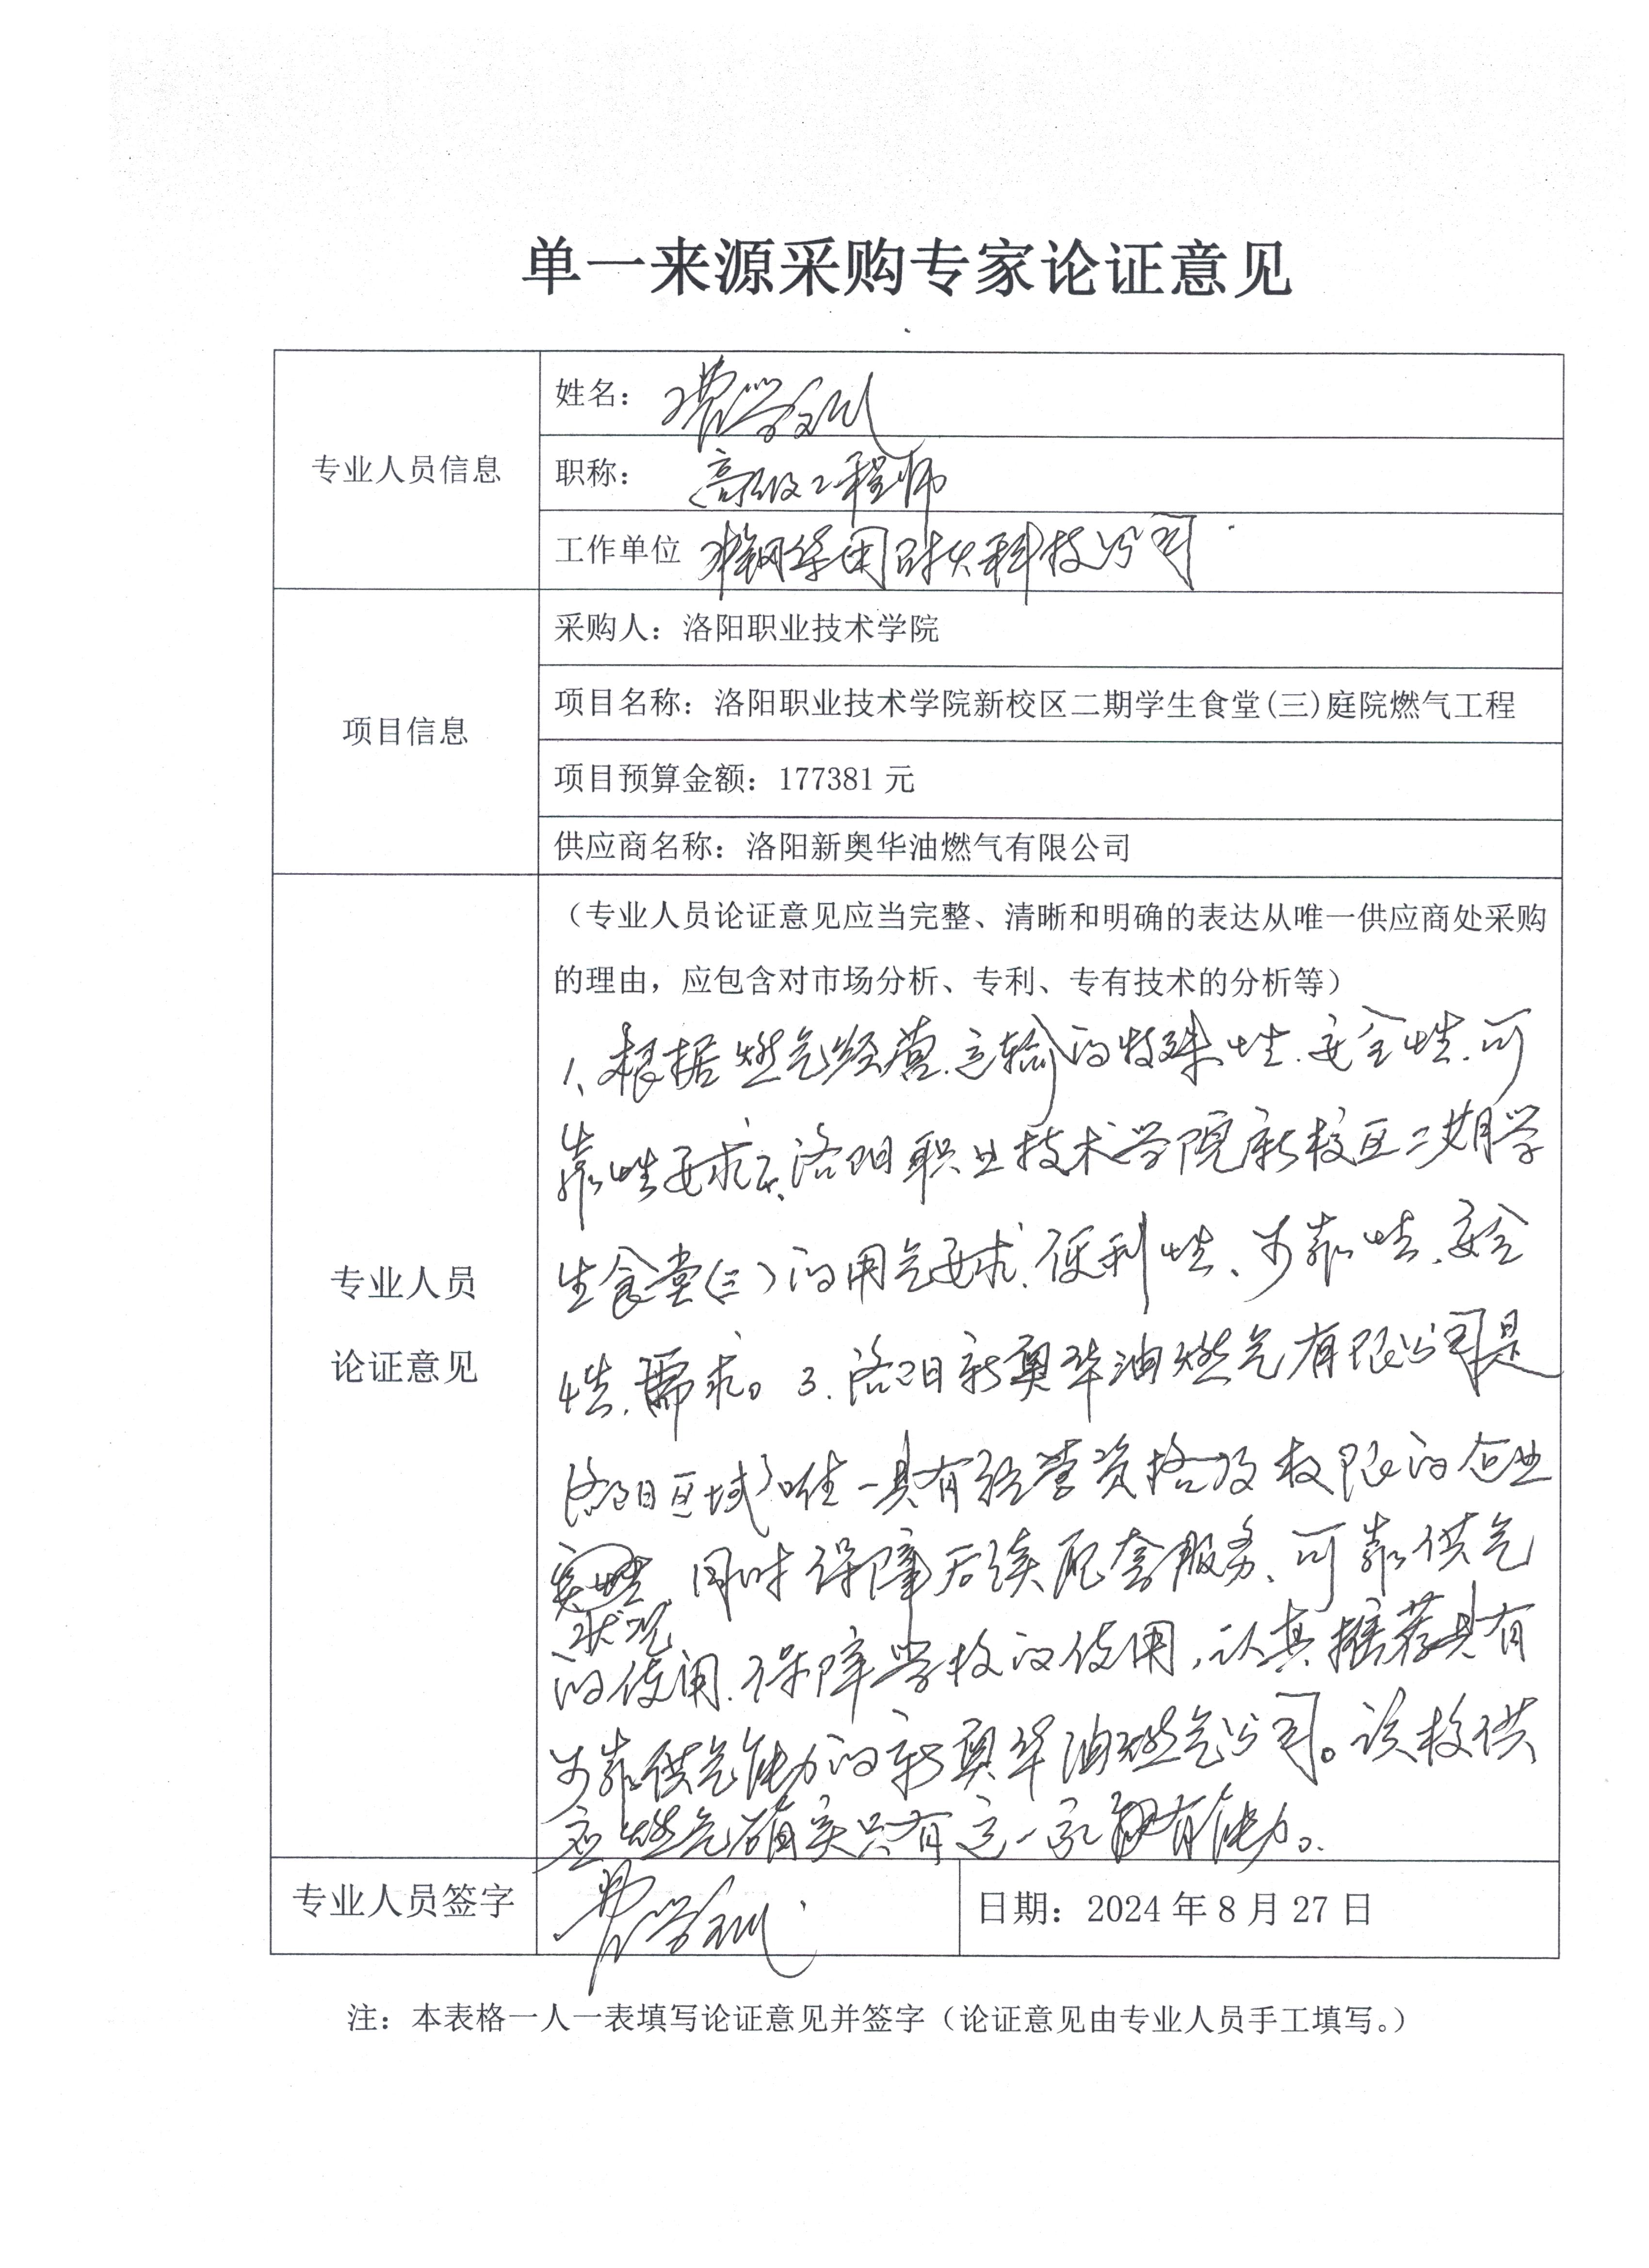 单一来源采购专家论证意见
专业人员信息
姓名:
职称: 高级工程师
工作单位 集团耐火科技公司
项目信息
采购人:洛阳职业技术学院
项目名称:洛阳职业技术学院新校区二期学生食堂(三)庭院燃气工程
项目预算金额:177381元
供应商名称:洛阳新奥华油燃气有限公司
专业人员
论证意见
(专业人员论证意见应当完整、清晰和明确的表达从唯一供应商处采购
的理由,应包含对市场分析、专利、专有技术的分析等)
1、根据燃气经营、运输的特殊性、安全性、可
靠性要求2、洛阳职业技术学院新校区二期学
生食堂(三)的用气要求、便利性、可靠性、安全
性、需求。3、洛阳新奥华油燃气有限公司是
洛阳区域唯一具有经营资格及权限的企业
同时保障后续配套服务、可靠供气
状况
的使用、保障学校的使用,认真推荐具有
可靠供气能力的新奥华油燃气公司。该校供
应燃气确实只有这一家拥有能力。
专业人员签字
日期:2024年8月27日
注:本表格一人一表填写论证意见并签字(论证意见由专业人员手工填写。)